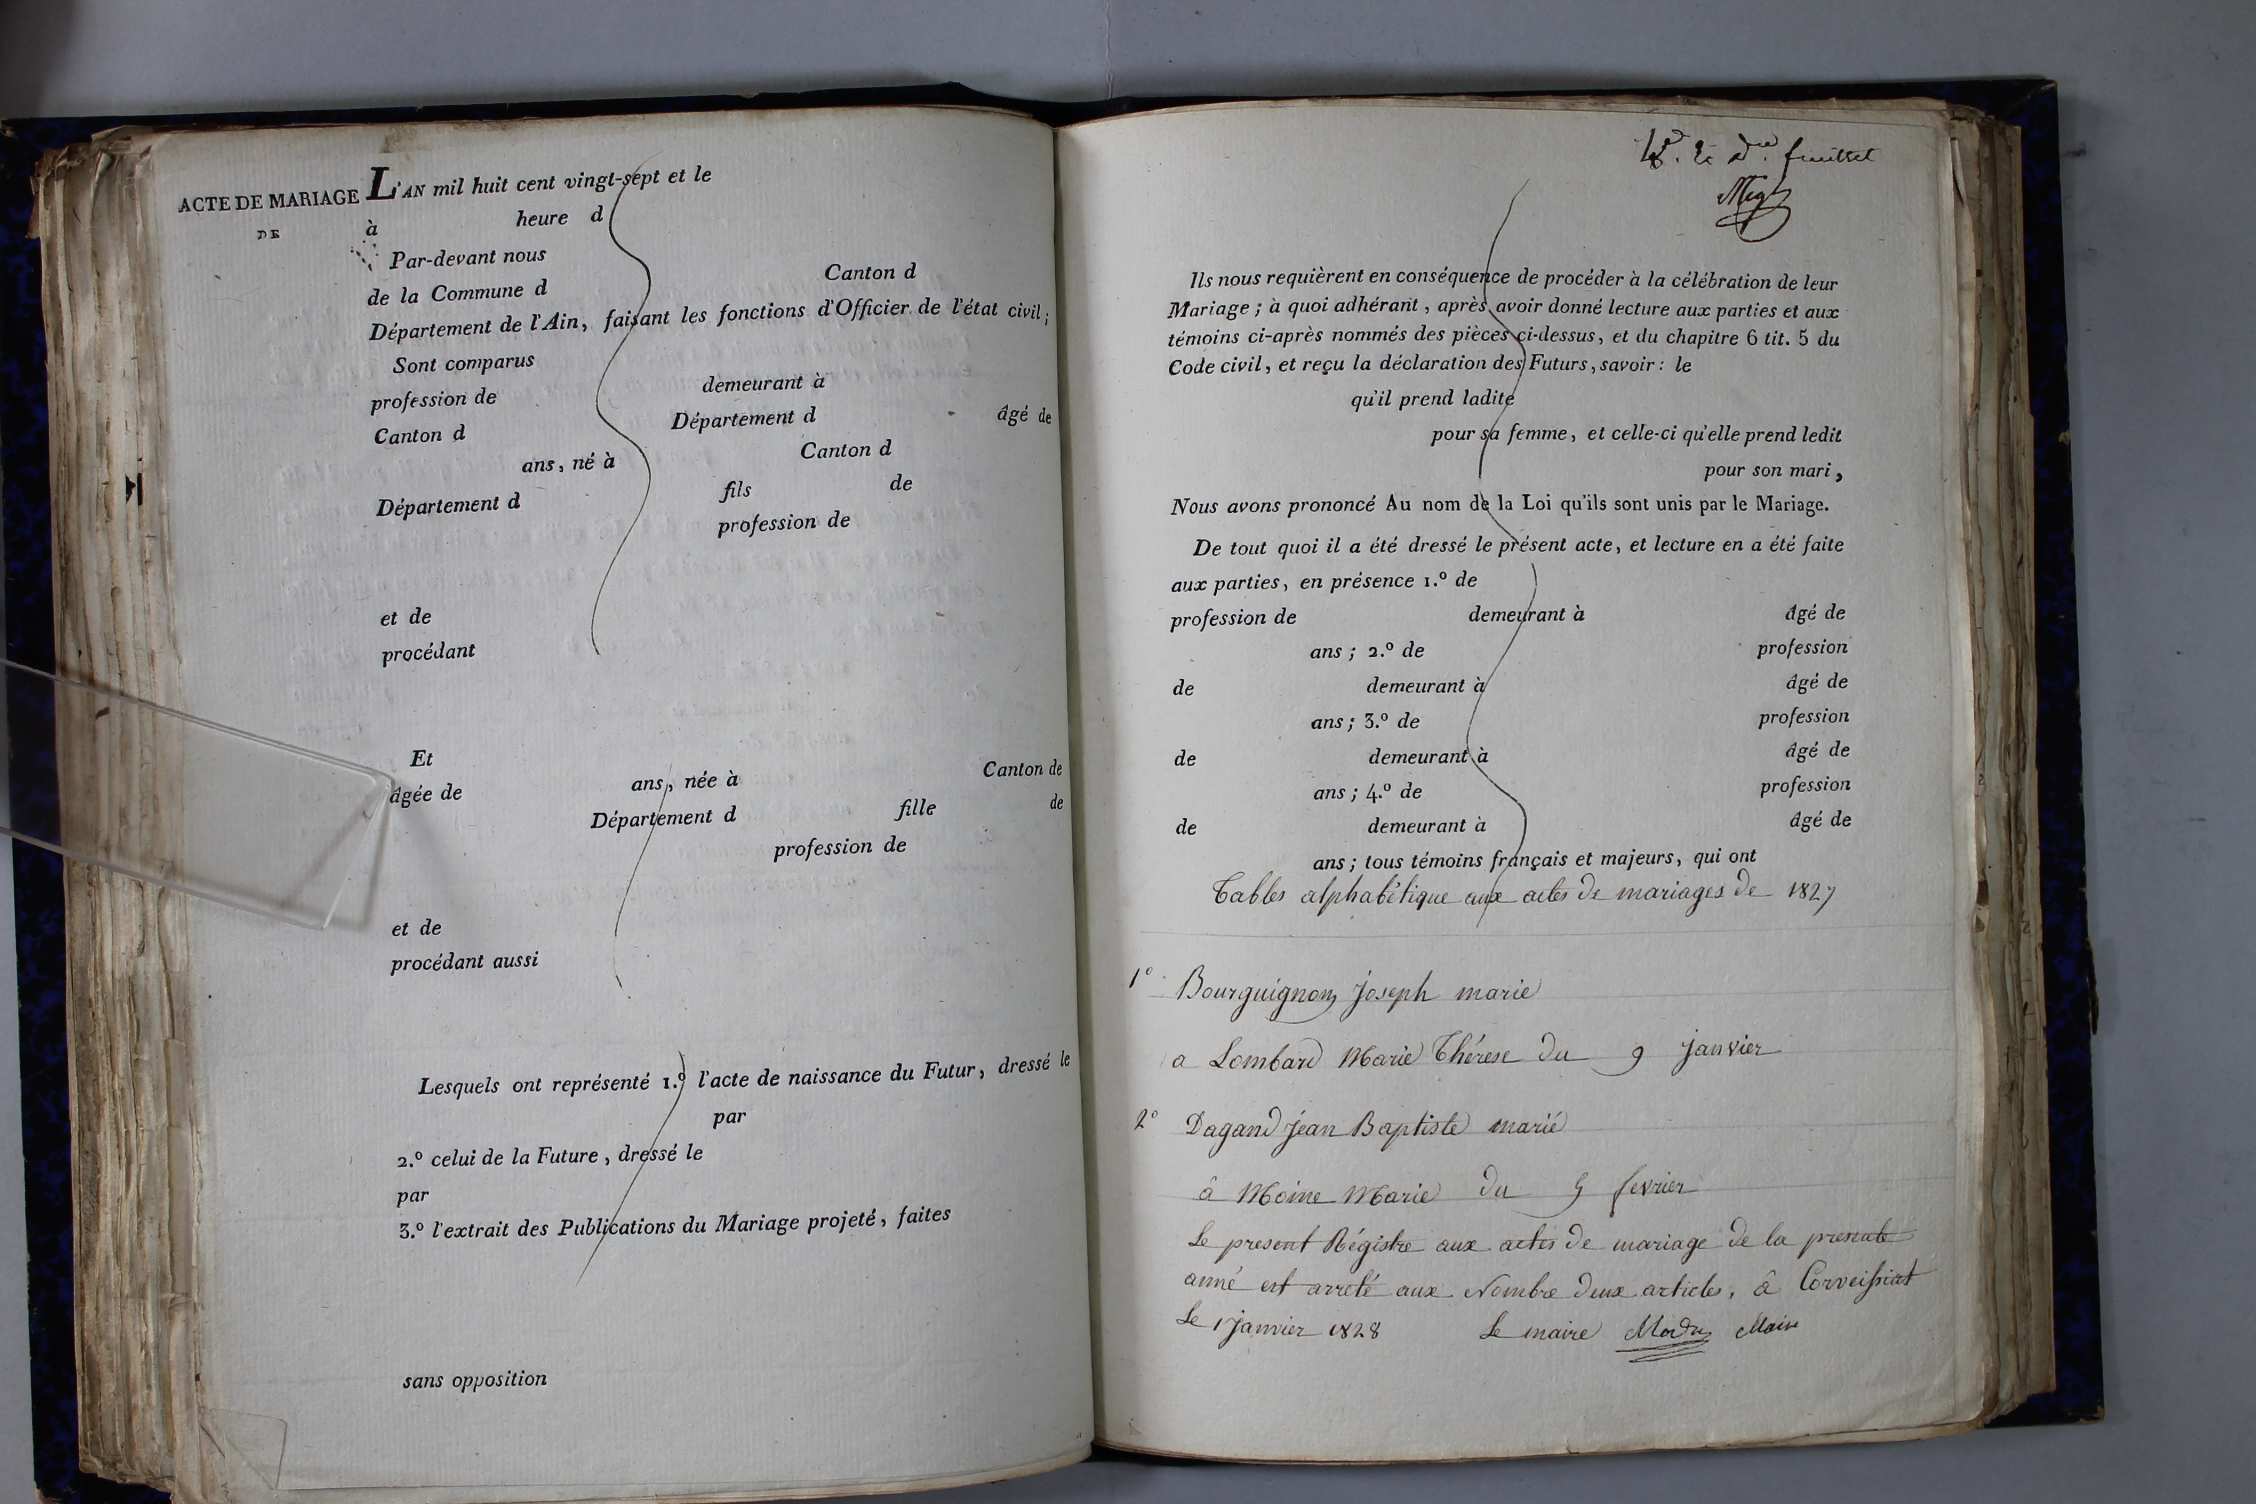 ACTE DE MARIAGE L'AN mil huit cent vingt-sept et le
DE à heure d
Par-devant nous
de la Commune d Canton d
Département de l'Ain, faisant les fonctions d'Officier de l'état civil;
Sont comparus
profession de demeurant à
Canton d Département d âgé de
ans, né à Canton d
Département d fils de
profession de
et de
procédant
Et
âgée de ans, née à Canton de
Département d fille de
profession de
et de
procédant aussi
Lesquels ont représenté 1.º l'acte de naissance du Futur, dressé le
par
2.º celui de la Future, dressé le
par
3.º l'extrait des Publications du Mariage projeté, faites
sans opposition
feuillet
Ils nous requièrent en conséquence de procéder à la célébration de leur
Mariage; à quoi adhérant, après avoir donné lecture aux parties et aux
témoins ci-après nommés des pièces ci-dessus, et du chapitre 6 tit. 5 du
Code civil, et reçu la déclaration des Futurs, savoir: le
qu'il prend ladite
pour sa femme, et celle-ci qu'elle prend ledit
pour son mari,
Nous avons prononcé Au nom de la Loi qu'ils sont unis par le Mariage.
De tout quoi il a été dressé le présent acte, et lecture en a été faite
aux parties, en présence 1.º de
profession de demeurant à âgé de
ans; 2.º de profession
de demeurant à âgé de
ans; 3.º de profession
de demeurant à âgé de
ans; 4.º de profession
de demeurant à âgé de
ans; tous témoins français et majeurs, qui ont
Tables alphabétique aux actes de mariages de 1827
1º Bourguignon Joseph marie
a Lombard Marie Thérese du 9 janvier
2º Dagand jean Baptiste marié
â Moine Marie du 5 fevrier
Le present Régistre aux actes de mariage de la presente
anné est arreté aux Nombre deux articles, â Corveissiat
Le 1 janvier 1828 Le maire Maire